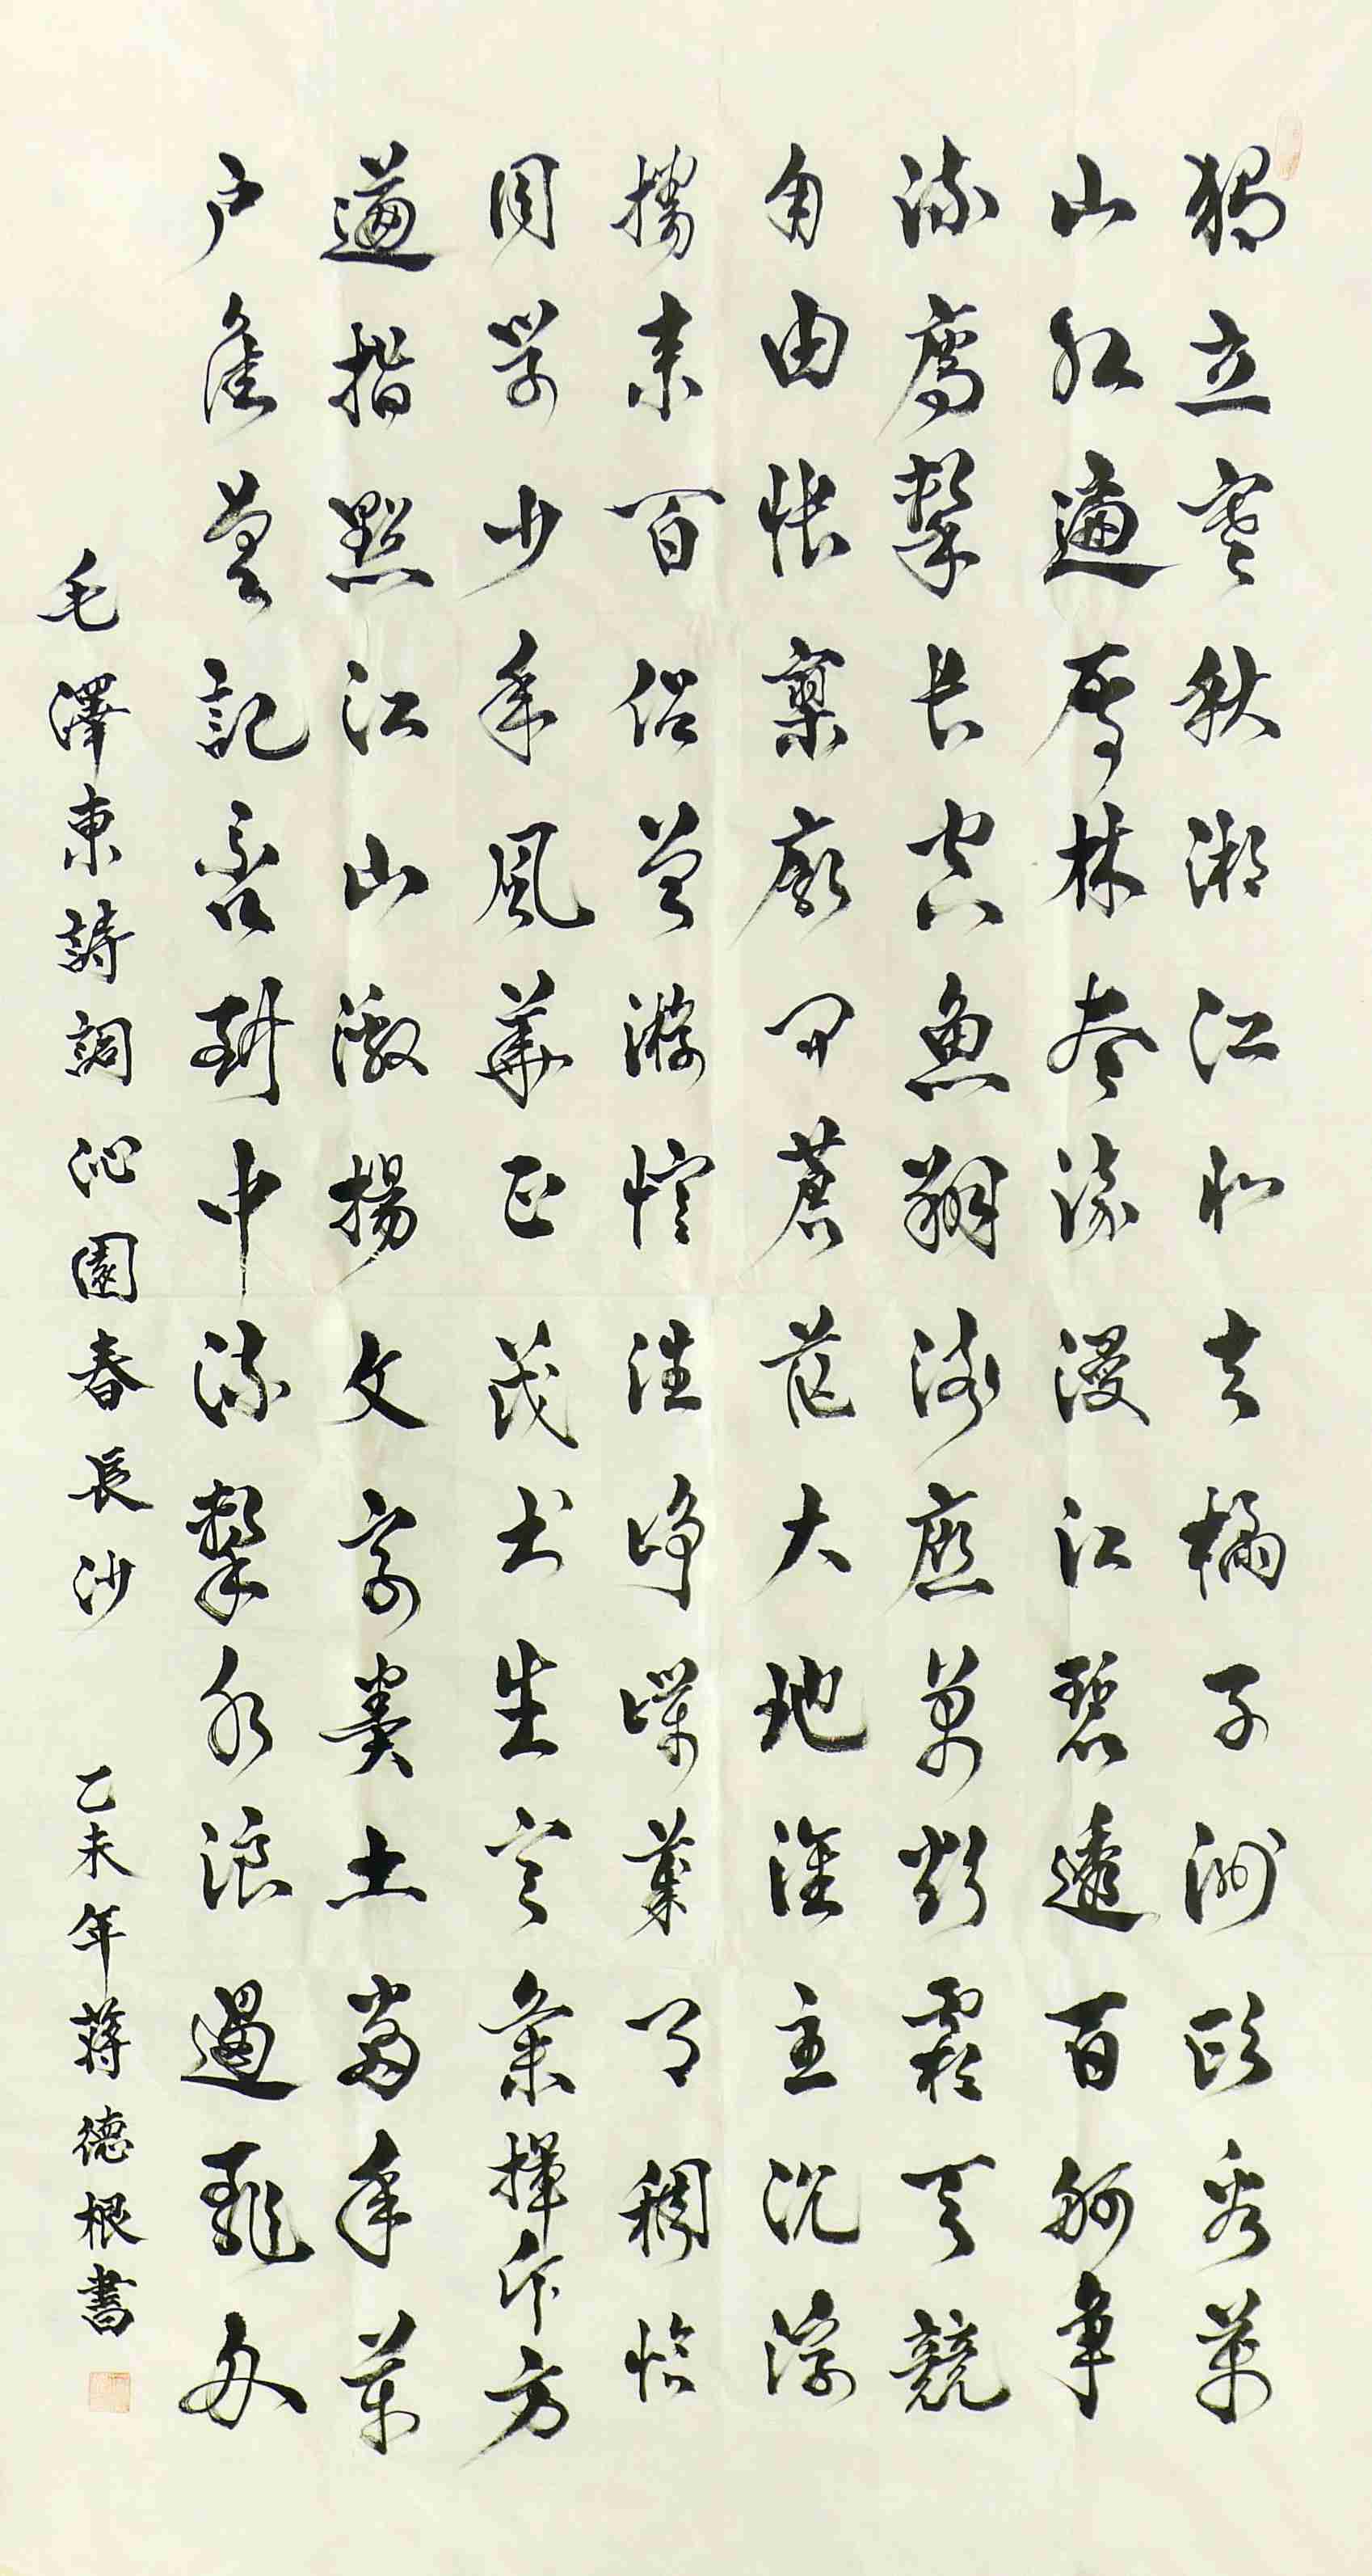 獨立寒秋湘江北去橘子洲頭看萬
山紅遍層林盡染漫江碧透百舸爭
流鷹擊長空魚翔淺底萬類霜天競
自由悵寥廓問蒼茫大地誰主沉浮
攜來百侣曾游憶往崢嶸歲月稠恰
同學少年風華正茂書生意氣揮斥方
遒指點江山激揚文字糞土當年萬
户侯曾記否到中流擊水浪遏飛舟
毛澤東詩詞沁園春長沙 乙未年蔣德根書